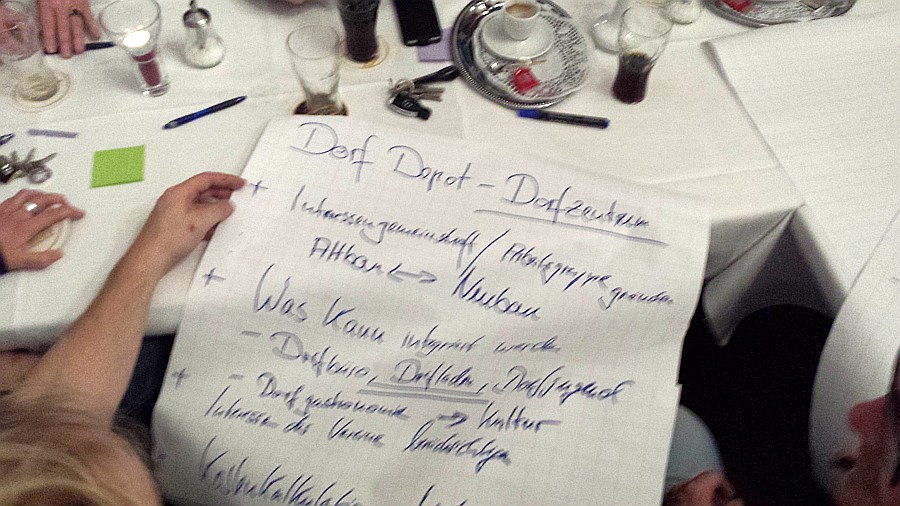 Dorf Depot - Dorfzentrum
+ Interessengemeinschaft / Arbeitsgruppe gründen
Altbau <-> Neubau
+ Was kann integriert werden
- Dorfbüro, Dorfladen, Dorfjugend
- Dorfgastronomie -> Kultur
+ Interessen der Vereine berücksichtigen
Kostenkalkulation